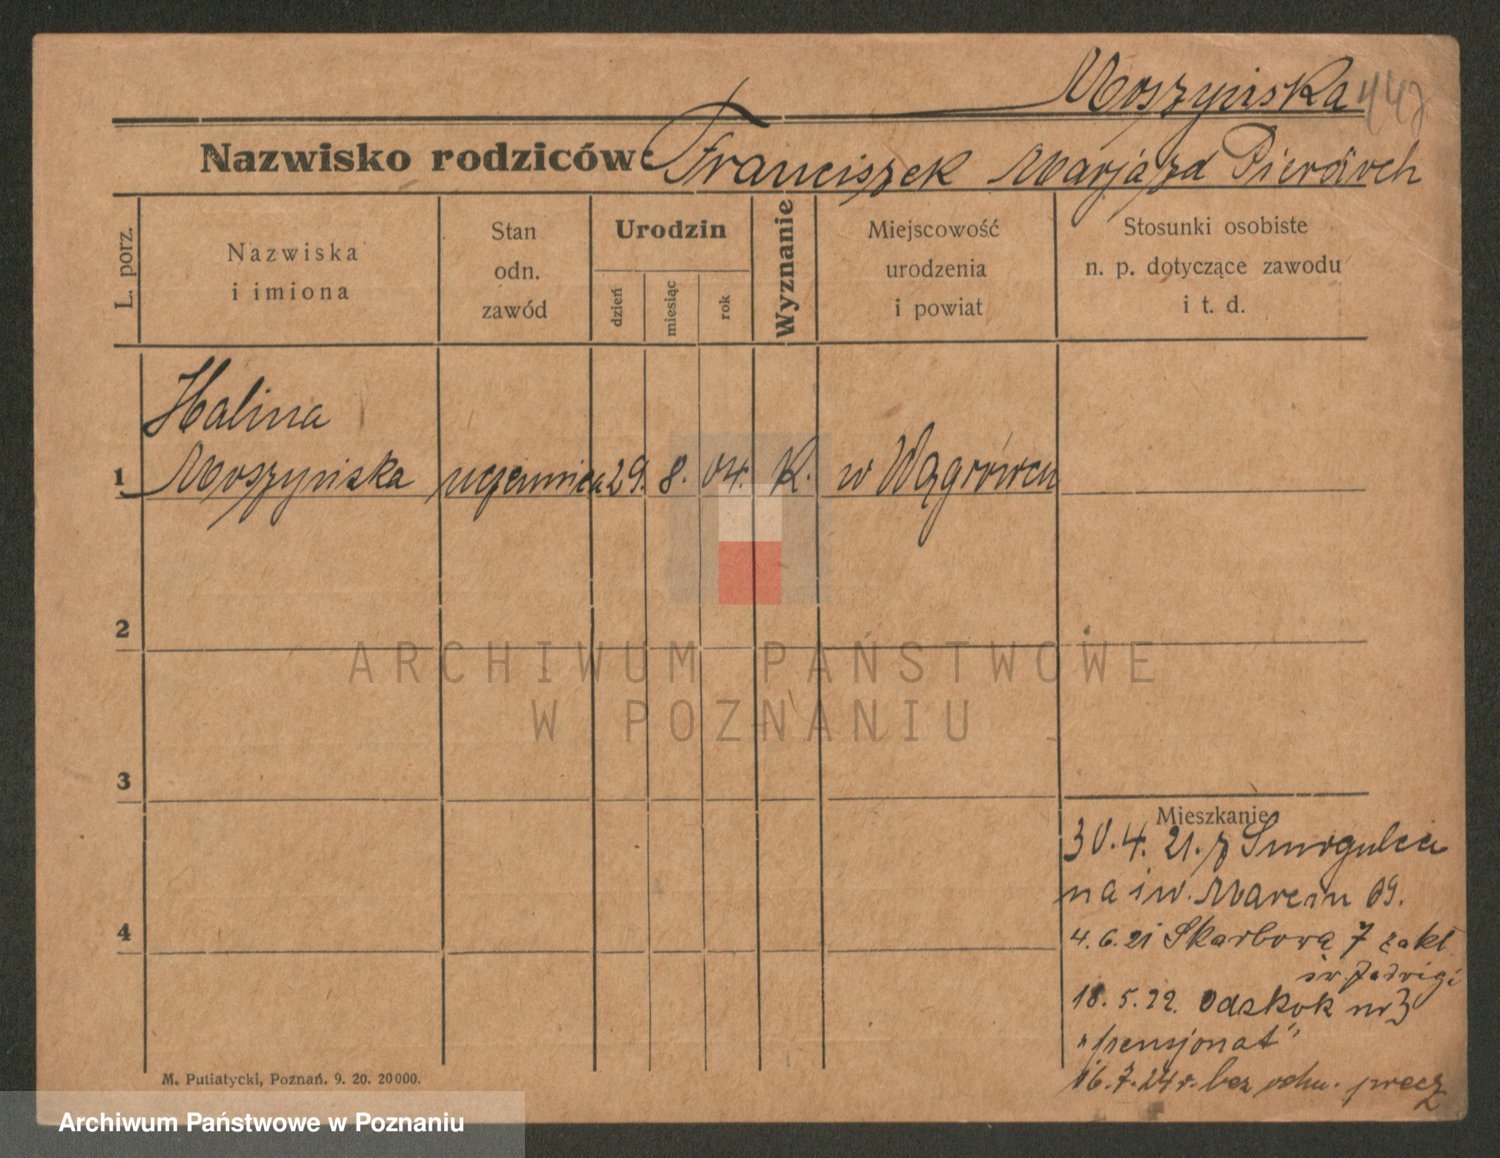 Moszyńska 447
Nazwisko rodziców: Franciszek Marja zd
L. porz.
Nazwiska
i imiona
Stan
odn.
zawód
Urodzin
dzień
miesiąc
rok
Wyznanie
Miejscowość
urodzenia
i powiat
Stosunki osobiste
n. p. dotyczące zawodu
i t. d.
Halina
1 Moszyńska uczennica 29. 8. 04. K. w Wągrówcu
2
ARCHIWUM PAŃSTWOWE
W POZNANIU
3
Mieszkanie
30.4.21. z Smogulca
na św. Marcin 69.
4
4.6.21 Skarbową 7 zakł
św. Jadwigi
18.5.22. Odskok nr 3
"pensjonat"
16.7.24 r. bez odm. precz
M. Putiatycki, Poznań. 9. 20. 20000.
Archiwum Państwowe w Poznaniu